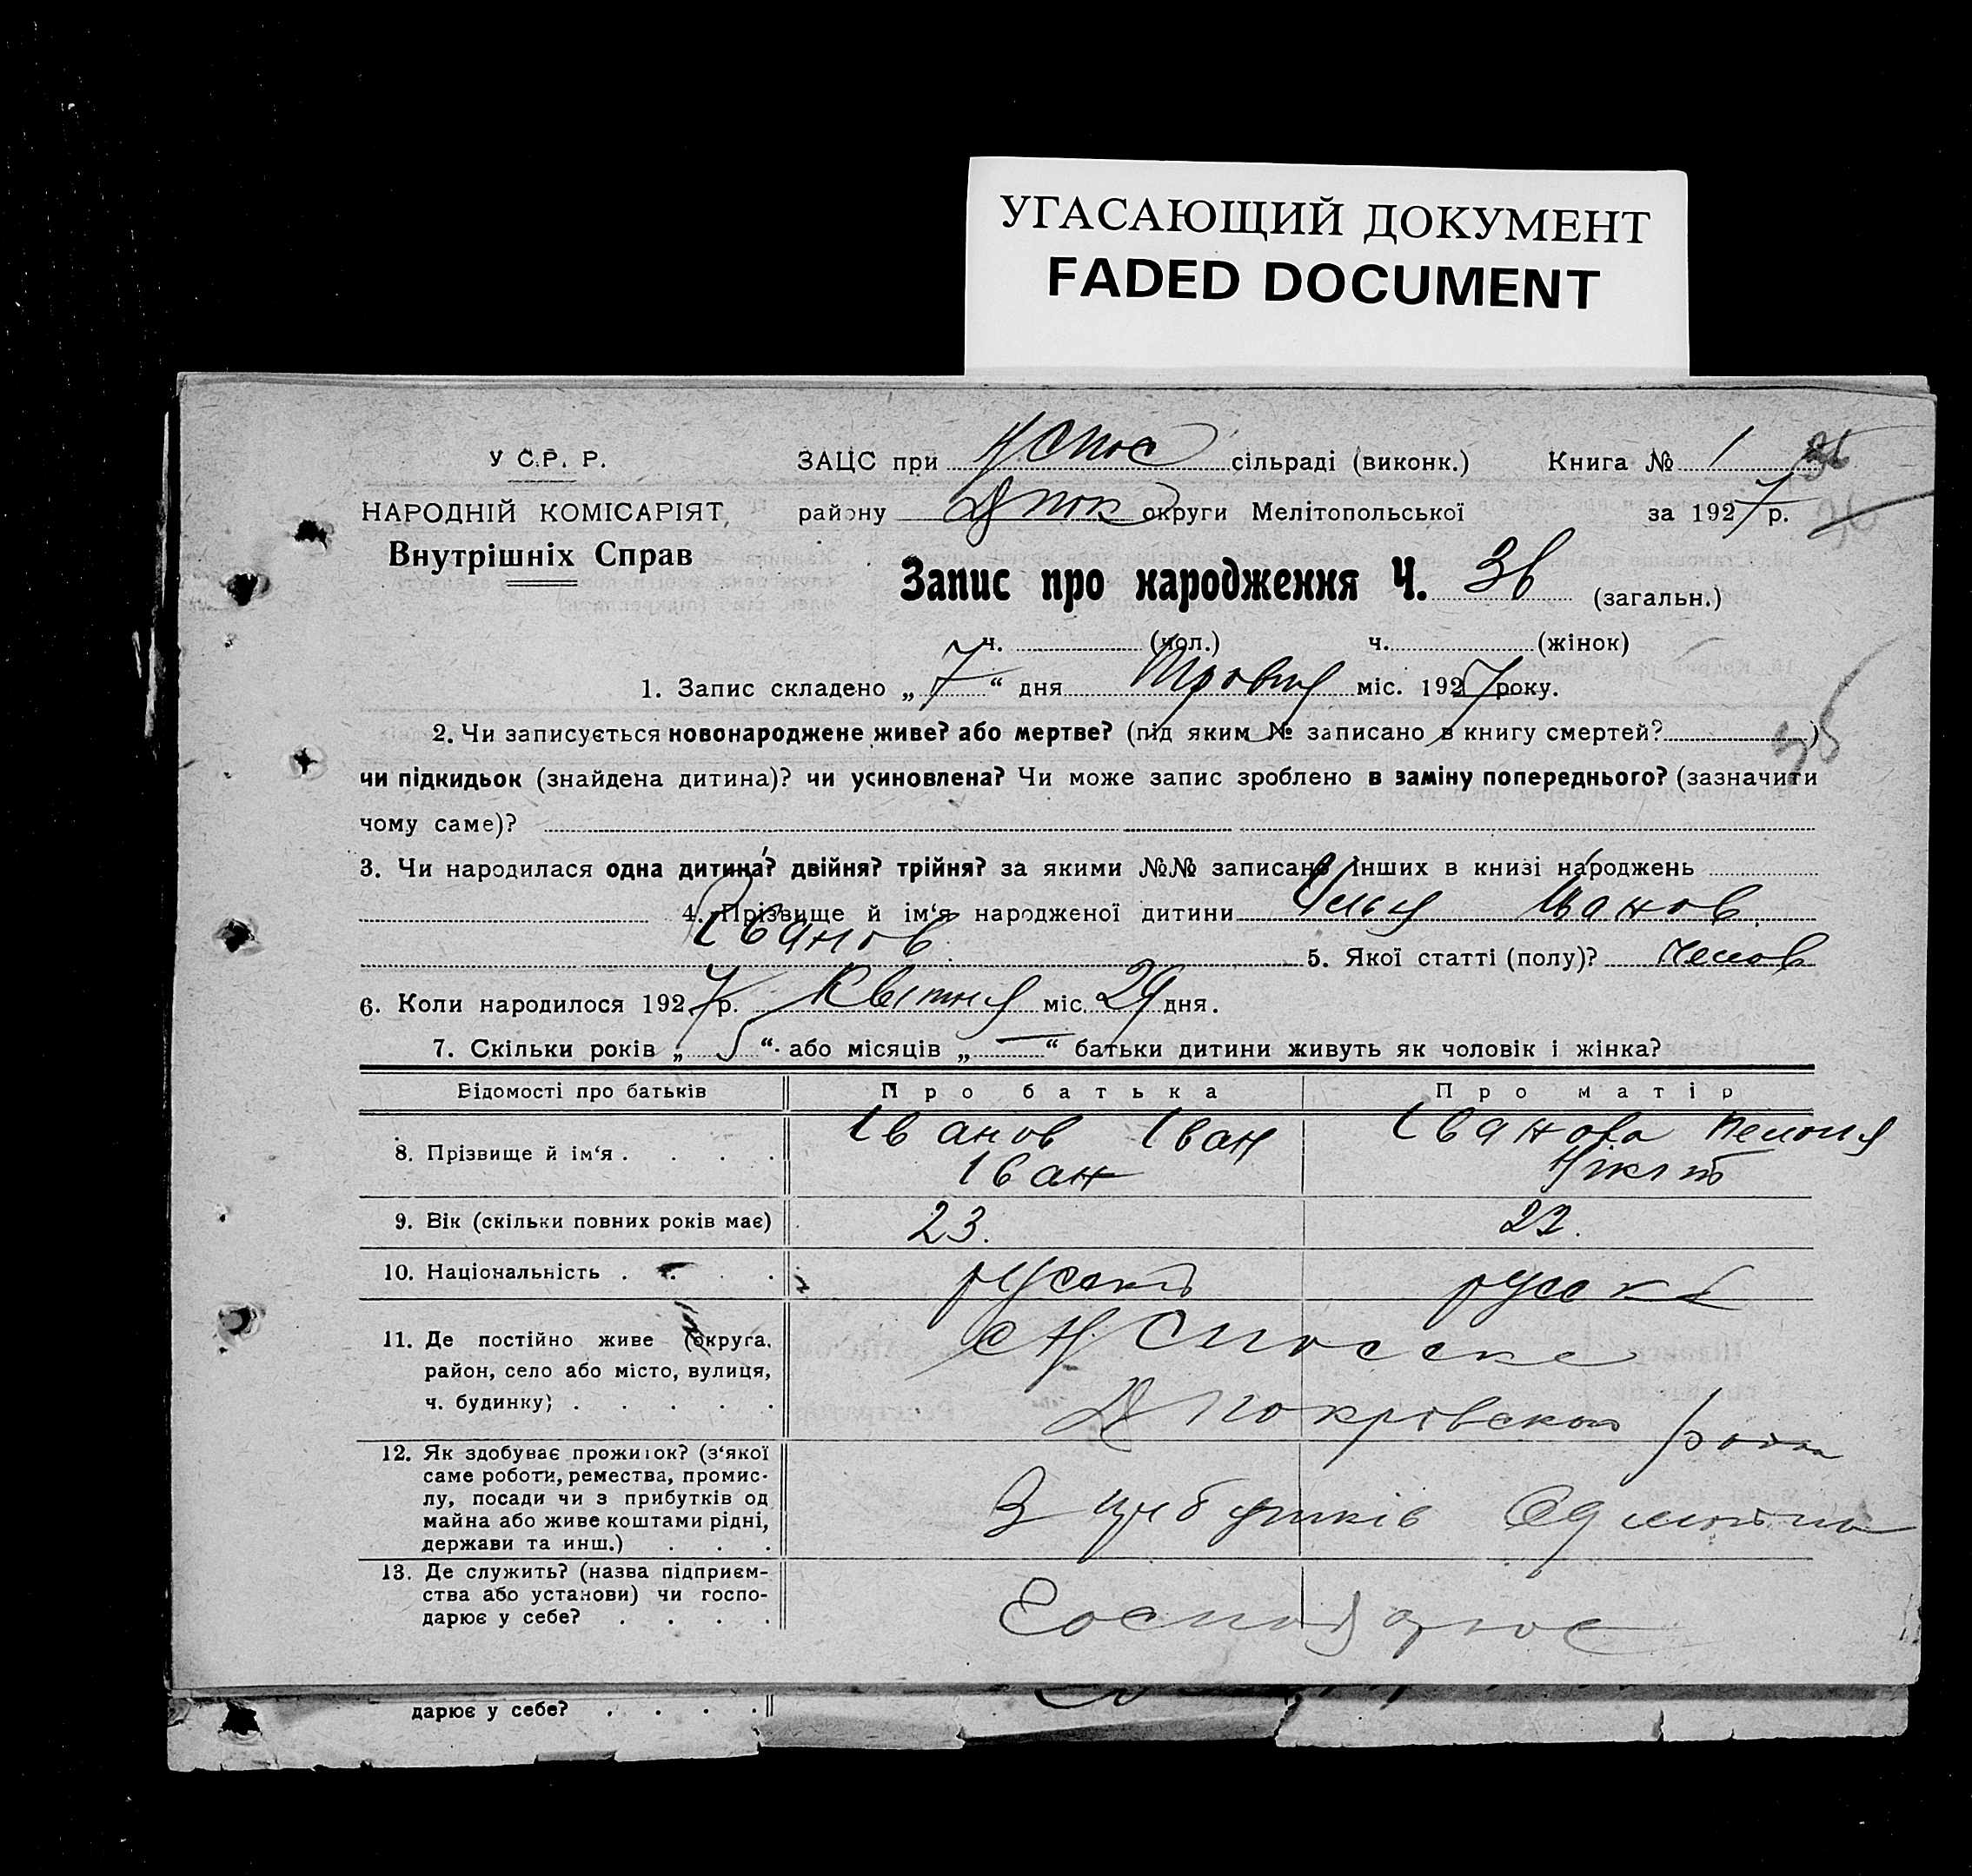 УГАСАЮЩИЙ ДОКУМЕНТ
FADED DOCUMENT
У С.Р. Р.
НАРОДНІЙ КОМІСАРІЯТ
Внутрішніх Справ
ЗАЦС при Н Спос сільраді (виконк.) Книга № 1 36
району Дпок округи Мелітопольської за 1927 р. 36
Запис про народження Ч. 36 (загальн.)
ч. (чол.) ч. (жінок)
1. Запис складено „7“ дня Травня міс. 1927 року.
2. Чи записується новонароджене живе? або мертве? (під яким № записано в книгу смертей? )
чи підкидьок (знайдена дитина)? чи усиновлена? Чи може запис зроблено в заміну попереднього? (зазначити
чому саме)?
3. Чи народилася одна дитина? двійня? трійня? за якими №№ записано інших в книзі народжень
4. Прізвище й ім'я народженої дитини Илья Іванов
Іванов 5. Якої статті (полу)? челов
6. Коли народилося 1927 р. Квітня міс. 29 дня.
7. Скільки років „5“ або місяців „—“ батьки дитини живуть як чоловік і жінка?
Відомості про батьків Про батька Про матір
8. Прізвище й ім'я . . . . Іванов Іван Іванова
Іван Нікіт
9. Вік (скільки повних років має) 23. 22.
10. Національність . . . . руський руска
11. Де постійно живе (округа, с Н Спасске
район, село або місто, вулиця,
ч. будинку; . . . . . Д Покрівском район
12. Як здобуває прожиток? (з'якої
саме роботи, ремества, промис-
лу, посади чи з прибутків од З прибутків Од майна
майна або живе коштами рідні,
держави та инш.) . . .
13. Де служить? (назва підприєм-
ства або установи) чи госпо- Господарює
дарює у себе? . . . .
дарює у себе? . . . .